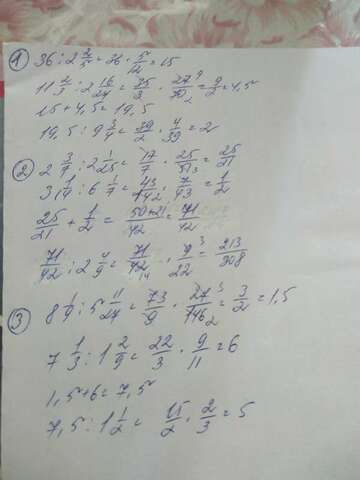 1) 36 : 2 2/5 = 36 · 5/12 = 15
11 2/3 : 2 16/27 = 35/3 · 27 9/70 2 = 9/2 = 4,5
15 + 4,5 = 19,5
19,5 : 9 3/4 = 39/2 · 4/39 = 2
2) 2 3/7 : 2 1/25 = 17/7 · 25/51 3 = 25/21
3 1/14 : 6 1/7 = 43/14 2 · 7/43 = 1/2
25/21 + 1/2 = 50+21/42 = 71/42
71/42 : 2 4/9 = 71/42 14 · 9 3/22 = 213/308
3) 8 1/9 : 5 11/27 = 73/9 · 27 3/146 2 = 3/2 = 1,5
7 1/3 : 1 2/9 = 22/3 · 9/11 = 6
1,5 + 6 = 7,5
7,5 : 1 1/2 = 15/2 · 2/3 = 5